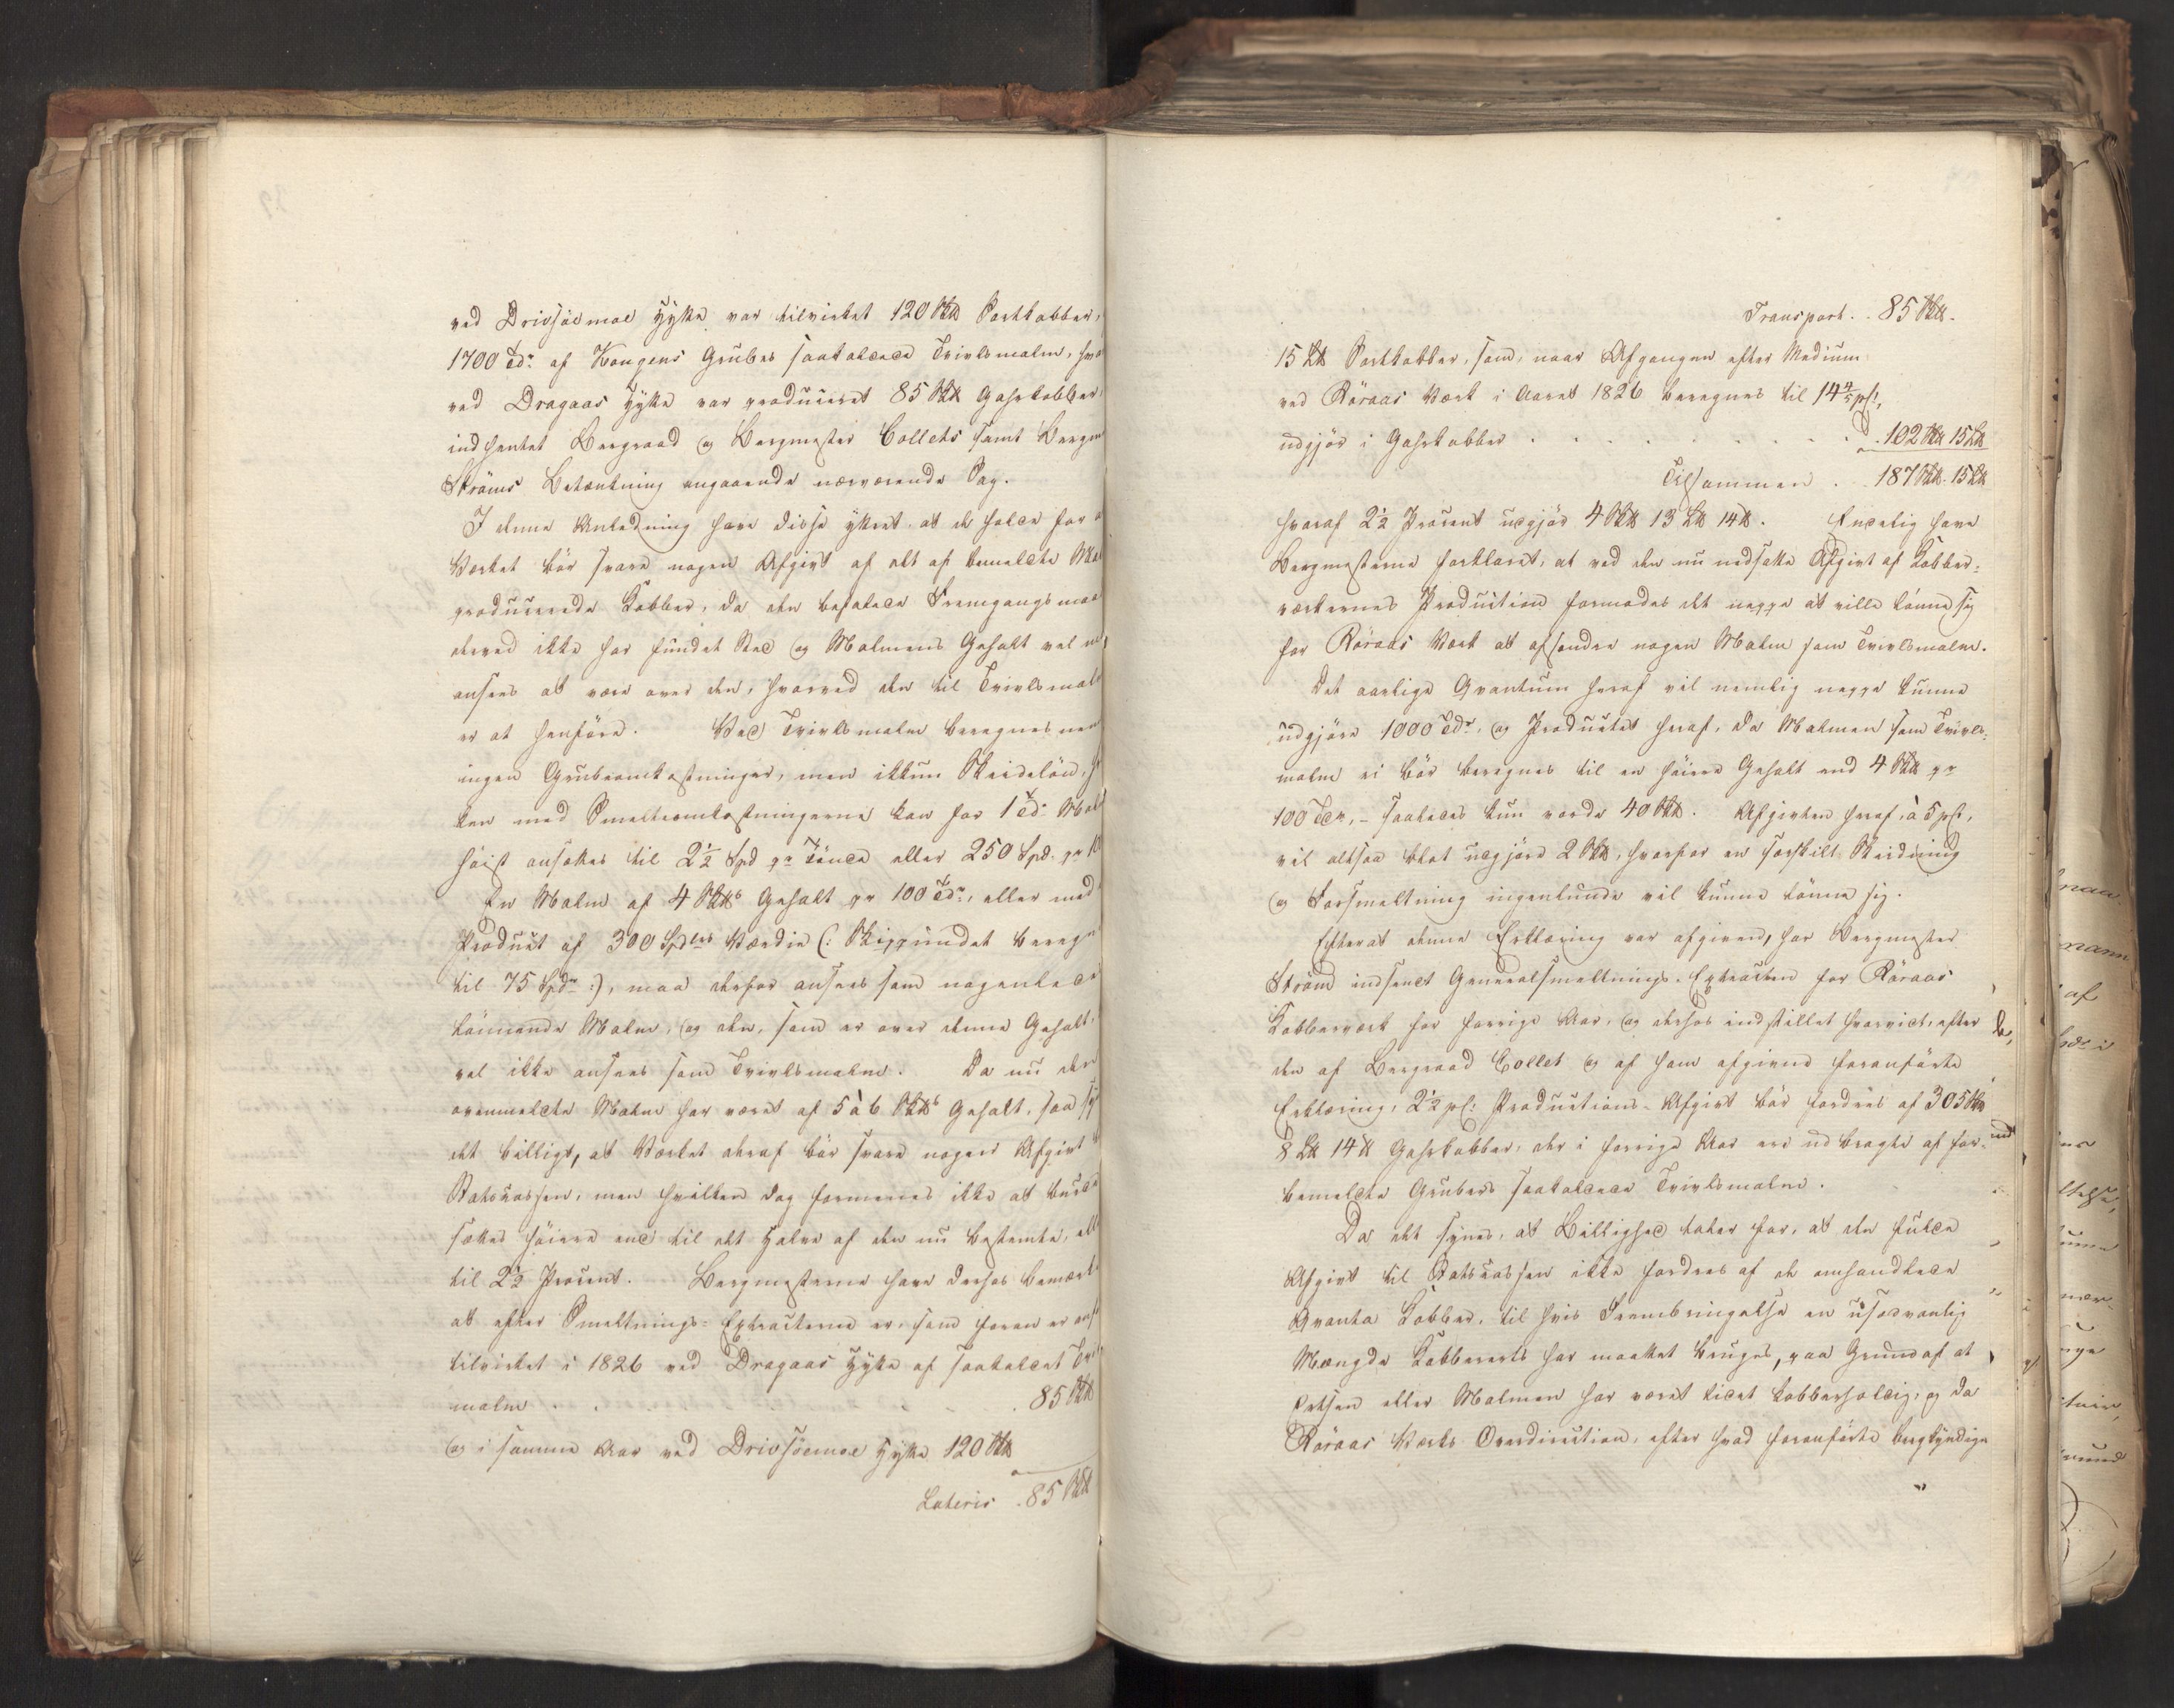 ved Drivsöemoe Hytte var tilvirket 120 Sk℔ Sortkobber,
1700 Tdr. af Kongens Grubes saakaldede Tvivlsmalm,
ved Dragaas Hytte var produceret 85 Sk℔ Gahrkobber,
indhentet Bergraad og Bergmester Collets samt
Ströms Betænkning angaaende nærværende Sag.
I denne Anledning have disse yttret, at de holde for
Værket bör svare nogen Afgivt af alt af bemeldte
producerede Kobber, da den befalede Fremgangsmaa
derved ikke har fundet Sted og Malmens Gehalt vel
ansees at være over den, hvorved den til Tvivlsmalm
er at henföre. Ved Tvivlsmalm beregnes
ingen Grubeomkostninger, men ikkun Skeidelön,
ken med Smelteomkostningerne kan for 1 Td. Malm
höist ansættes til 2½ Spd pr Tönde eller 250 Spd. pr
En Malm af 4 Sk℔s Gehalt pr 100 Tdr., eller med
Product af 300 Spdlrs Værdie (: Skippundet bereg
til 75 Spdr :), maa derfor ansees som nogenlede
lönnende Malm, og den, som er over denne Gehalt,
vel ikke ansees som Tvivlsmalm. Da nu den
ovenmeldte Malm har været af 5 à 6 Sk℔s Gehalt, saa
det billigt, at Værket deraf bör svare nogen Afgivt
Statskassen, men hvilken dog formenes ikke at burde
sættes höiere end til det Halve af den nu bestemte,
til 2½ Procent. Bergmesterne have derhos bemærk
at efter Smeltnings-Extracterne er, som foran er
tilvirket i 1826 ved Dragaas Hytte af saakaldet
malm . . . . . 85 Sk℔
og i samme Aar ved Drivsöemoe Hytte 120 Sk℔
Lateris . 85 Sk℔
Transport . . 85 Sk℔.
15 L℔ Sortkobber, som, naar Afgangen efter Medium
ved Röraas Værk i Aaret 1826 beregnes til 14⅘ pCt.,
udgjör i Gahrkobber . . . . . . 102 Sk℔ 15 L℔
Tilsammen . . 187 Sk℔. 15 L℔
hvoraf 2½ Procent udgjör 4 Sk℔ 13 L℔ 14 ℔. Endelig have
Bergmesterne forklaret, at ved den nu nedsatte Afgivt af Kobber-
værkernes Production formodes det neppe at ville lönne sig
for Röraas Værk at afsondre nogen Malm som Tvivlsmalm.
Det aarlige Qvantum heraf vil nemlig neppe kunne
udgjöre 1000 Tdr., og Productet heraf, da Malmen som Tvivls-
malm ei bör beregnes til en höiere Gehalt end 4 Sk℔ pr
100 Tdr, – saaledes kun vorde 40 Sk℔. Afgivten heraf, à 5 pCt.,
vil altsaa blot udgjöre 2 Sk℔, hvorfor en særskilt Skeidning
og Forsmeltning ingenlunde vil kunne lönne sig.
Efterat denne Erklæring var afgiven, har Bergmester
Ström indsendt Generalsmeltnings-Extracten for Röraas
Kobberværk for forrige Aar, og derhos indstillet hvorvidt, efter
den af Bergraad Collet og af ham afgivne foranförte
Erklæring, 2½ pCt. Productions-Afgivt bör fordres af 305 Sk℔
8 L℔ 14 ℔ Gahrkobber, der i forrige Aar ere udbragte af for-
bemeldte Grubers saakaldede Tvivlsmalm.
Da det synes, at Billighed taler for, at den fulde
Afgivt til Statskassen ikke fordres af de omhandlede
Qvanta Kobber, til hvis Frembringelse en usædvanlig
Mængde Kobbererts har maattet bruges, paa Grund af at
Ertsen eller Malmen har været lidet kobberholdig, og da
Röraas Værks Overdirection, efter hvad foranförte bergkyndige